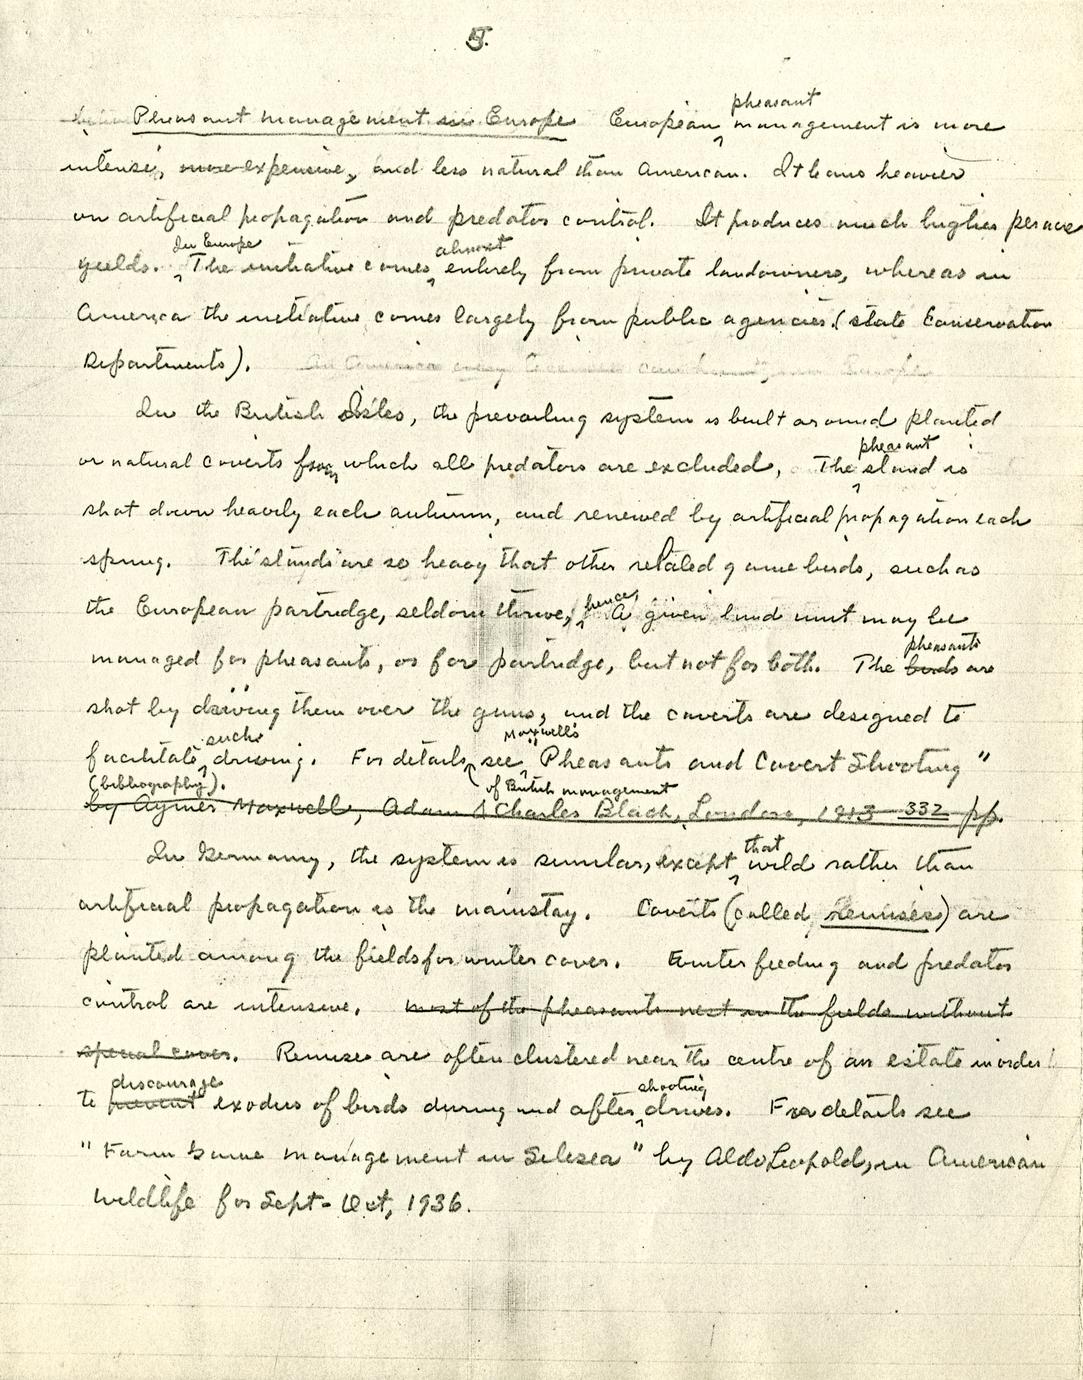 5.
Pheasant management in Europe European pheasant management is more
intense, more expensive, and less natural than American. It leans heavier
on artificial propagation and predator control. It produces much higher per acre
yields. In Europe The initiative comes almost entirely from private landowners, whereas in
America the initiative comes largely from public agencies. (State Conservation
Departments).
In the British Isles, the prevailing system is built around planted
or natural coverts from which all predators are excluded, The pheasant stand is
shot down heavily each autumn, and renewed by artificial propagation each
spring. The "stands" are so heavy that other related game birds, such as
the European partridge, seldom thrive, hence, A given land unit may be
managed for pheasants, or for partridge, but not for both. The birds pheasants are
shot by driving them over the guns, and the coverts are designed to
facilitate such driving. For details of British management see Maxwell's "Pheasants and Covert Shooting"
(bibliography).
by Aymer Maxwell, Adam & Charles Black, London, 1913 332 pp.
In Germany, the system is similar, except that wild rather than
artificial propagation is the mainstay. Coverts (called remises) are
planted among the fields for winter cover. Winter feeding and predator
control are intensive. Most of the pheasants nest in the fields without
special cover. Remises are often clustered near the centre of an estate in order
to prevent discourage exodus of birds during and after shooting drives. For details see
"Farm Game Management in Silesia" by Aldo Leopold, in American
Wildlife for Sept-Oct, 1936.